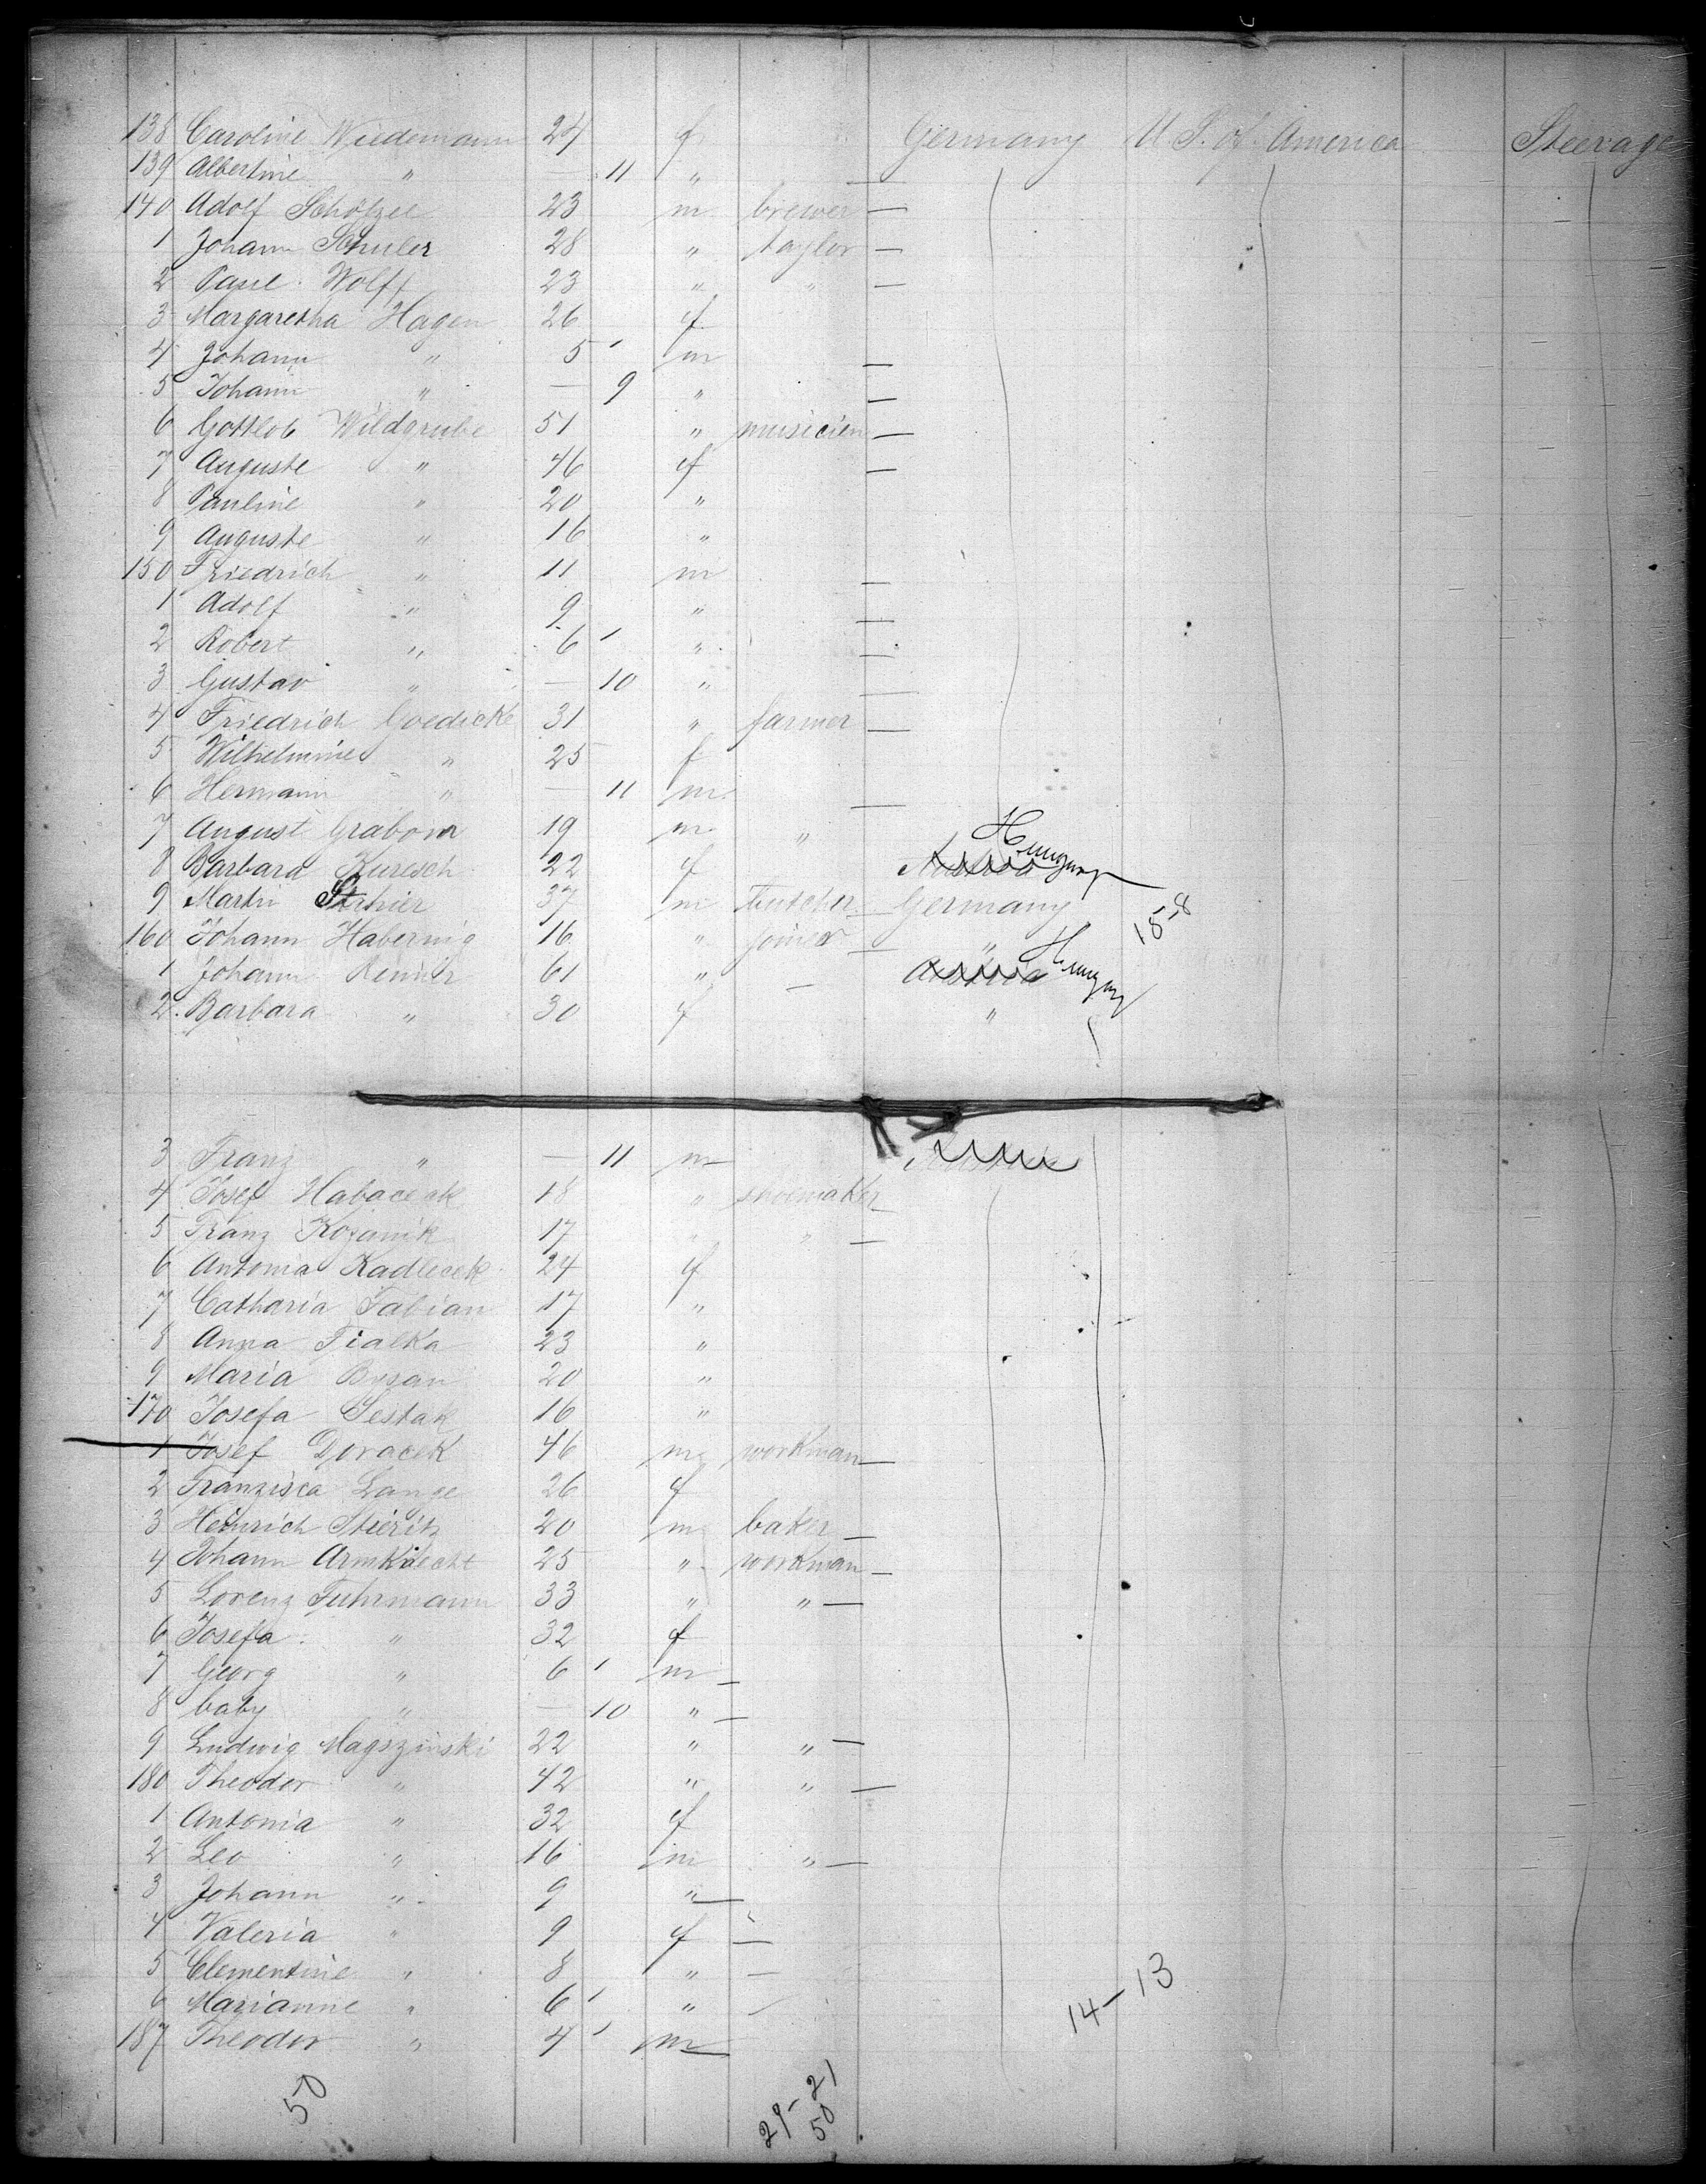 138 Caroline Wiedemann 24 f Germany U.S. of America Steerage
139 Albertine " — 11 "
140 Adolf Schölzel 23 m brewer —
1 Johann Schuler 28 " taylor —
2 Paul Wolff 23 " " —
3 Margaretha Hagen 26 f
4 Johann " 5 ' m —
5 Johann " — 9 " —
6 Gottlob Wildgrube 51 " musicien —
7 Auguste " 46 f —
8 Pauline " 20 "
9 Auguste " 16 "
150 Friedrich " 11 m —
1 Adolf " 9 " —
2 Robert " 6 ' " —
3 Gustav " — 10 " —
4 Friedrich Goedicke 31 " farmer —
5 Wilhelmine " 25 f
6 Hermann " — 11 m —
7 August Grabow 19 m " Hungary
8 Barbara Kuresch 22 f Austria
9 Martin 37 m butcher Germany 15-8
160 Johann Habernig 16 " joiner — " Hungary
1 Johann 61 " — Austria
2 Barbara " 30 f "
3 Franz " — 11 m
4 Josef Habacek 18 " shoemaker
5 Franz Kozanik 17 " " —
6 Antonia Kadlecek 24 f
7 Catharia Fabian 17 "
8 Anna Fialka 23 "
9 Maria 20 "
170 Josefa Sestak 16 "
1 Josef Doracek 46 m workman —
2 Franzisca Lange 26 f
3 Heinrich Stieritz 20 m baker —
4 Johann Armknecht 25 " workman —
5 Lorenz Fuhrmann 33 " " —
6 Josefa " 32 f
7 Georg " 6 ' m —
8 baby " — 10 " —
9 Ludwig Magszinski 22 " " —
180 Theodor " 42 " " —
1 Antonia " 32 f
2 Leo " 16 m " —
3 Johann " 9 " —
4 Valeria " 9 f —
5 Clementine " 8 " —
6 Marianne " 6 ' " —
187 Theodor " 4 ' m —
14-13
50
29-21
50